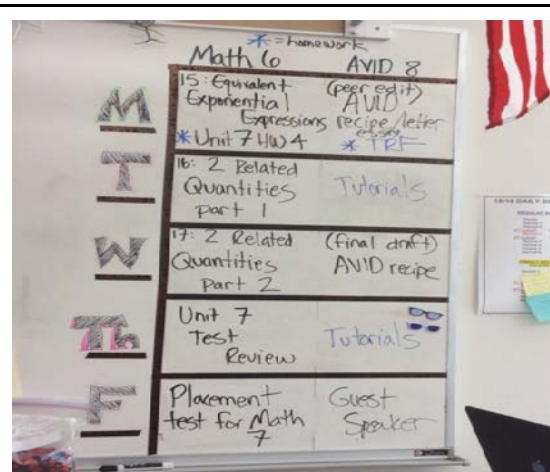 * = homework
Math 6 AVID 8
M
15: Equivalent
Exponential
Expressions
* Unit 7 HW 4
(peer edit)
AVID
recipe/letter
essay
* TRF
T
16: 2 Related
Quantities
part 1
Tutorials
W
17: 2 Related
Quantities
part 2
(final draft)
AVID recipe
Th
Unit 7
Test
Review
Tutorials
F
Placement
test for Math
7
Guest
Speaker